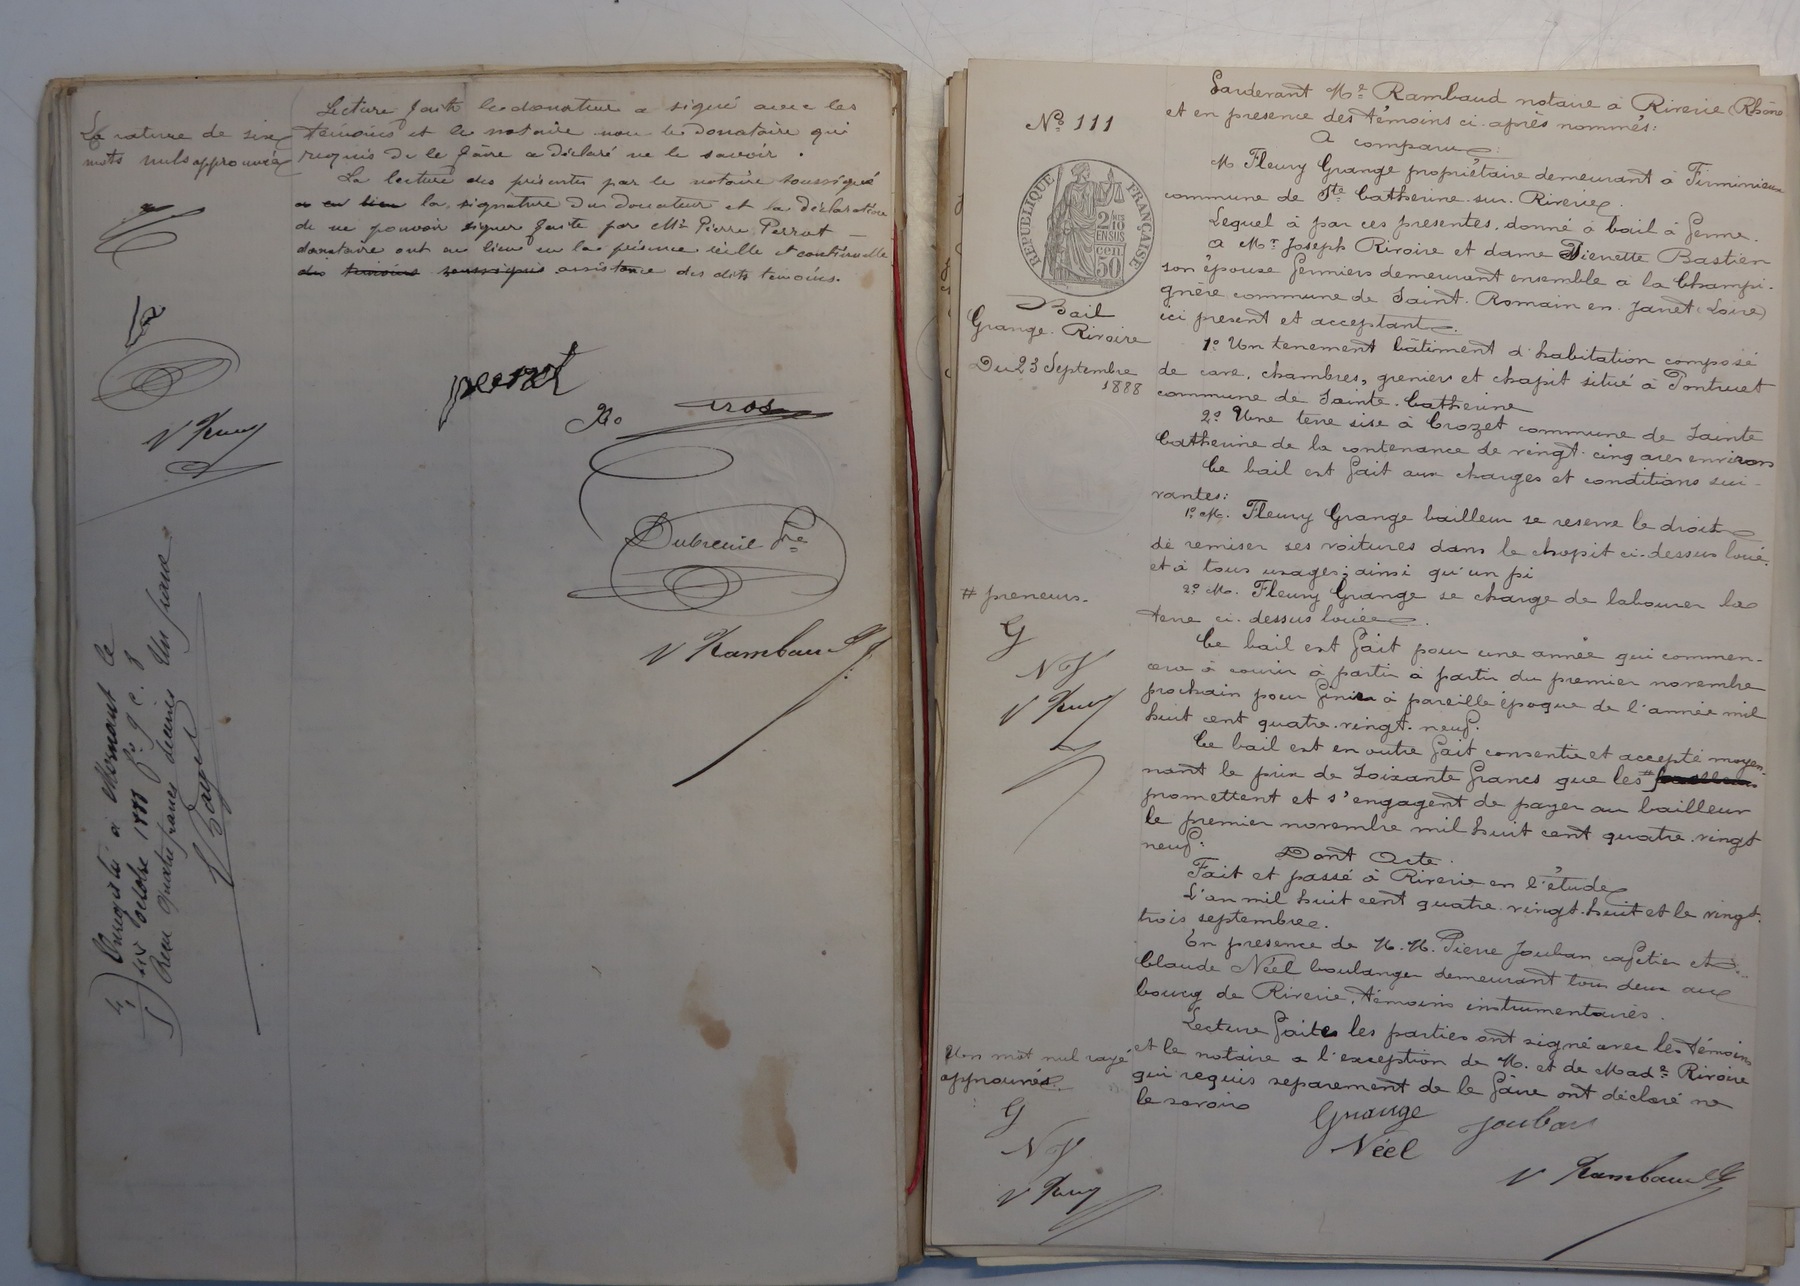 Lecture faite le donateur a signé avec les
témoins et le notaire non le donataire qui
requis de le faire a déclaré ne le savoir.
La lecture des présentes par le notaire soussigné
a eu lieu la signature du donateur et la déclaration
de ne pouvoir signer faite par Mr Pierre Perrat
donataire ont eu lieu en la présence réelle et continuelle
des témoins soussignés assistance des dits témoins.
La rature de six
mots nuls approuvée
perrat
Dubreuil
V Rambaud
Enregistré à Mornant le
six octobre 1888 fo 9 c. 8
Reçu quatre francs décimes Un franc
Nº 111
RÉPUBLIQUE FRANÇAISE
2/10 EN SUS
50 cen
Bail
Grange. Rivoire
Du 23 Septembre
1888
# preneurs.
G
N J
Un mot nul rayé
approuvé.
G
N J
Pardevant Me Rambaud notaire à Riverie (Rhône
et en presence des témoins ci-après nommés:
A comparu:
M Fleury Grange propriétaire demeurant à Firminieux
commune de Ste Catherine-sur-Riverie.
Lequel à par ces presentes, donné à bail à ferme.
A Mr Joseph Rivoire et dame Pierrette Bastien
son épouse fermiers demeurant ensemble à la Champi-
gnère commune de Saint-Romain en Jarret (Loire)
ici present et acceptant.
1º Un tenement bâtiment d'habitation composé
de cave, chambres, greniers et chapit situé à Pontruet
commune de Sainte-Catherine
2º Une terre sise à Crozet commune de Sainte
Catherine de la contenance de vingt-cinq ares environs
Ce bail est fait aux charges et conditions sui-
vantes:
1º M. Fleury Grange bailleur se reserve le droit
de remiser ses voitures dans le chapit ci-dessus loué
et à tous usages; ainsi qu'un pi
2º M. Fleury Grange se charge de labourer la
terre ci-dessus louée.
Ce bail est fait pour une année qui commen-
cera à courir à partir à partir du premier novembre
prochain pour finir à pareille époque de l'année mil
huit cent quatre-vingt-neuf.
Ce bail est en outre fait consenti et accepté moyen-
nant le prix de Soixante francs que les # bailleurs
promettent et s'engagent de payer au bailleur
le premier novembre mil huit cent quatre-vingt
neuf.
Dont Acte.
Fait et passé à Riverie en l'étude
L'an mil huit cent quatre-vingt-huit et le vingt-
trois septembre.
En présence de M.M. Pierre Jouban cafetier et
Claude Néel boulanger demeurant tous deux au
bourg de Riverie, témoins instrumentaires.
Lecture faites les parties ont signé avec les témoins
et le notaire a l'exception de M. et de Made Rivoire
qui requis separement de le faire ont déclaré ne
le savoir
Grange
Jouban
Néel
V Rambaud